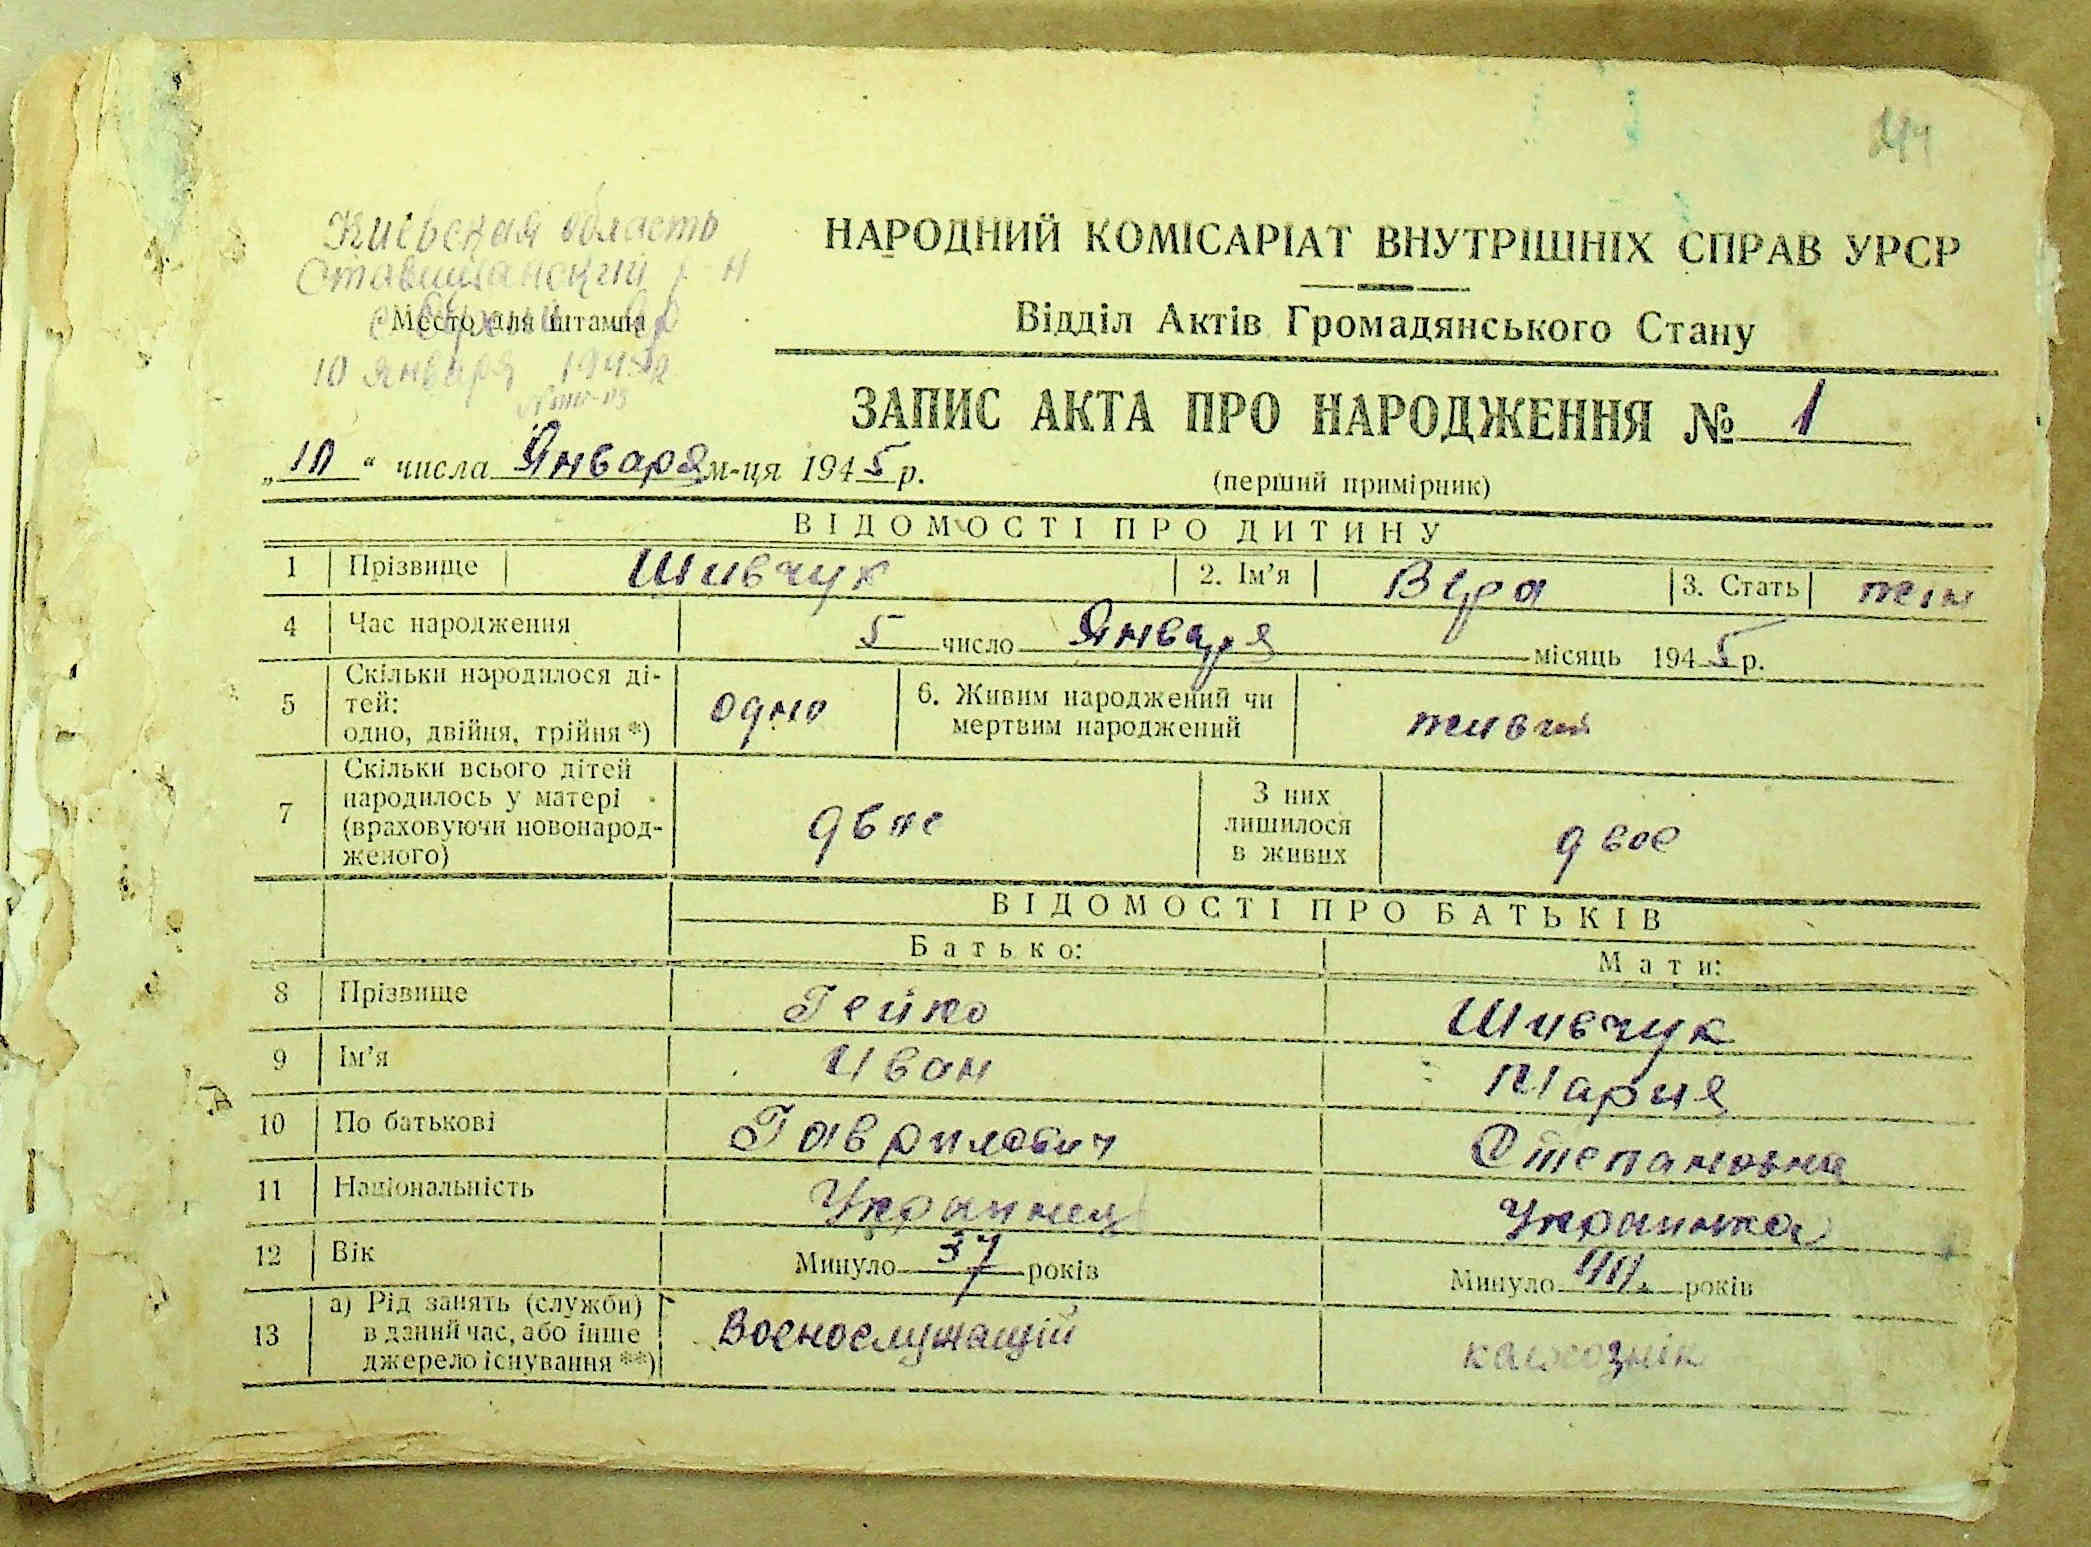 44
Киевская область
Ставищанский р-н
Место для штампа
10 января 1945 г
НАРОДНИЙ КОМІСАРІАТ ВНУТРІШНІХ СПРАВ УРСР
Відділ Актів Громадянського Стану
ЗАПИС АКТА ПРО НАРОДЖЕННЯ № 1
„10“ числа Января м-ця 1945 р.
(перший примірник)
ВІДОМОСТІ ПРО ДИТИНУ
1 Прізвище Шивчук 2. Ім’я Віра 3. Стать жін
4 Час народження 5 число Января місяць 1945 р.
5 Скільки народилося ді-
тей:
одно, двійня, трійня *) одно 6. Живим народжений чи
мертвим народжений живий
7 Скільки всього дітей
народилось у матері
(враховуючи новонарод-
женого) двое З них
лишилося
в живих двое
ВІДОМОСТІ ПРО БАТЬКІВ
Батько: Мати:
8 Прізвище Гейко Шивчук
9 Ім’я Иван Мария
10 По батькові Гаврилович Степановна
11 Національність Украинец Украинка
12 Вік Минуло 37 років Минуло років
13 а) Рід занять (служби)
в даний час, або інше
джерело існування **) Военослужащій колхознік